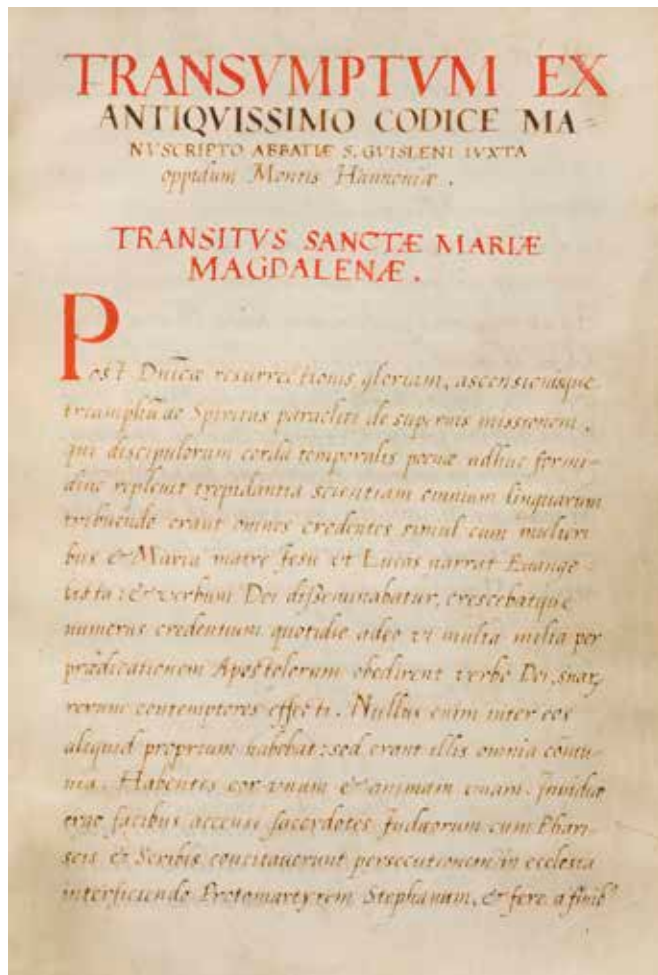 TRANSVMPTVM EX
ANTIQVISSIMO CODICE MA=
NVSCRIPTO ABBATIÆ S. GVISLENI IVXTA
oppidum Montis Hannoniæ.
TRANSITVS SANCTÆ MARIÆ
MAGDALENÆ.
Post Dñicæ resurrectionis gloriam, ascensionisque
triumphũ ac Spiritus paracliti de supernis missionem,
qui discipulorum corda temporalis poenæ adhuc formi-
dine repleuit trepidantia scientiam omnium linguarum
tribuendo erant omnes credentes simul cum mulieri
bus & Maria matre Jesu et Lucas narrat Euange-
lista: & verbum Dei disseminabatur, crescebatque
numerus credentium quotidie adeo vt multa milia per
prædicationem Apostolorum obedirent verbo Dei,
rerum contemptores effecti. Nullus enim inter eos
aliquid proprium habebat: sed erant illis omnia cõmu-
nia. Habentes cor vnum & animam vnam. Jnuidiæ
ergo facibus accensi sacerdotes Judæorum cum Phari-
seis & Scribis concitauerunt persecutionem in ecclesia
interficiendo Protomartyrem Stephanum, & fere a